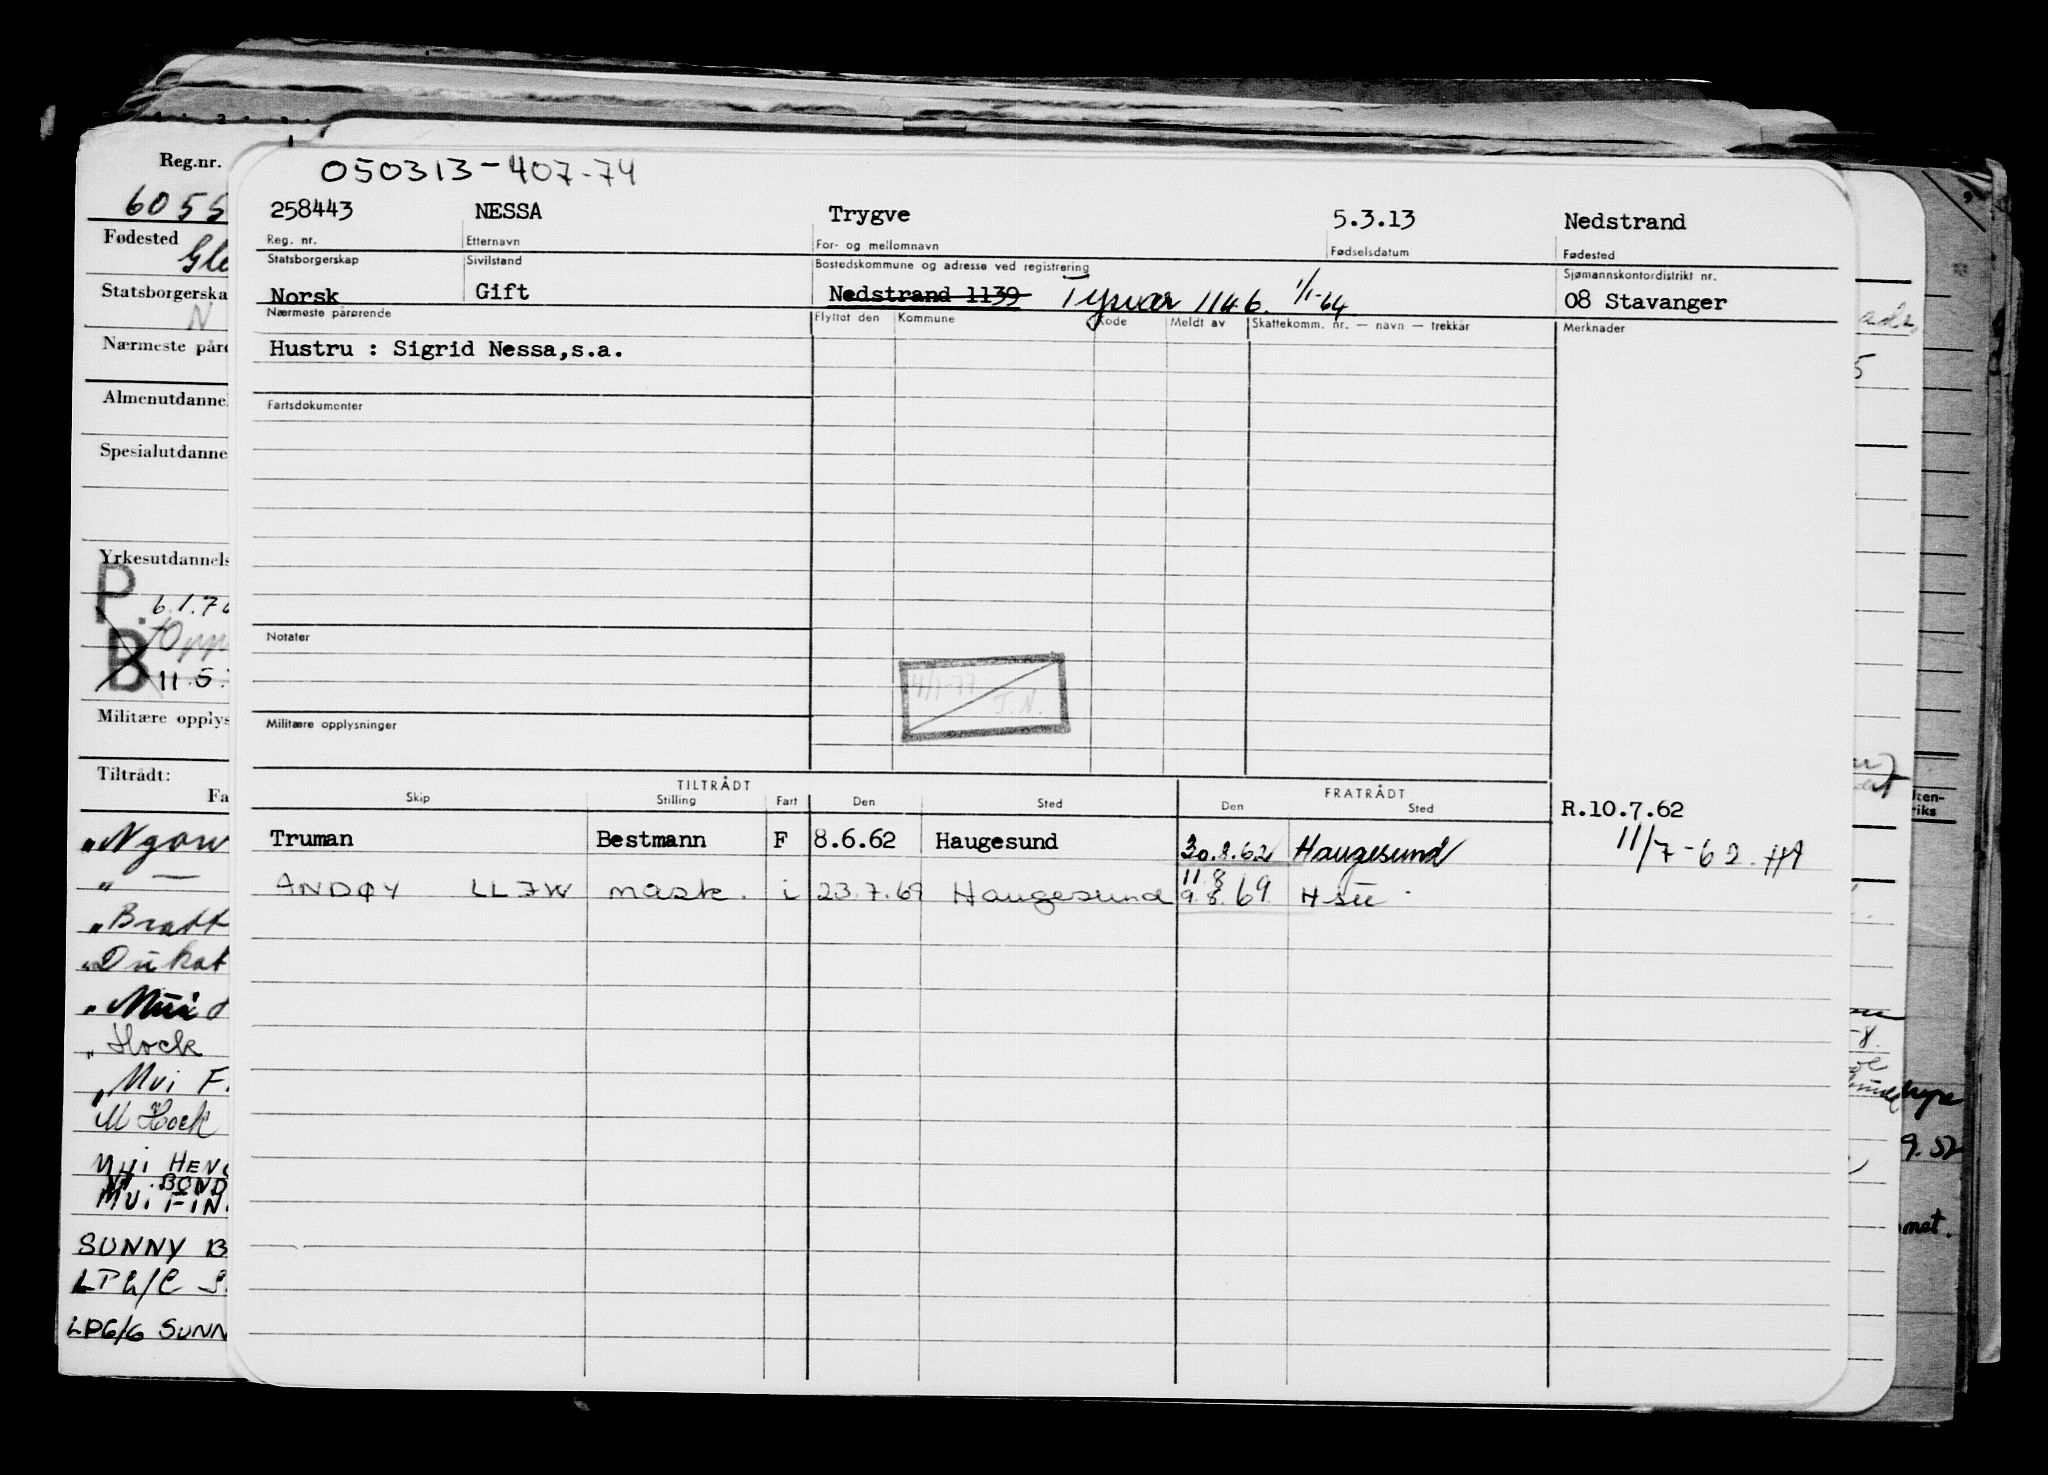 050313-407-74
258443 NESSA Trygve 5.3.13 Nedstrand
Reg. nr. Etternavn For- og mellomnavn Fødselsdatum Fødested
Statsborgerskap Sivilstand Bostedskommune og adresse ved registrering Sjømannskontordistrikt nr.
Norsk Gift Nedstrand 1139 Tysvær 1146. 1/1-64 08 Stavanger
Nærmeste pårørende Flyttet den Kommune Kode Meldt av Skattekomm. nr. — navn — trekkår Merknader
Hustru : Sigrid Nessa,s.a.
Fartsdokumenter
Notater
4/1-77 J.N.
Militære opplysninger
TILTRÅDT FRATRÅDT
Skip Stilling Fart Den Sted Den Sted
R.10.7.62
Truman Bestmann F 8.6.62 Haugesund 30.8.62 Haugesund 11/7-62. HA
ANDØY LL7W mask. i 23.7.69 Haugesund 11.8 9.8.69 H
Reg.nr.
6055
Fødested
Statsborgerska
N
Nærmeste påro
Almenutdannel
Spesialutdanne
Yrkesutdannels
P.
6.1.76
Opp
B
11.5.
Militære opplys
Tiltrådt:
Fa
"Ngow
" —
"Bratt
"Dukat
" Mui
" Hock
" Mui F.
M Hock
Mui HENG
M. BOND
Mui FIN
SUNNY B
LP6/G SUNN
9.52
met.